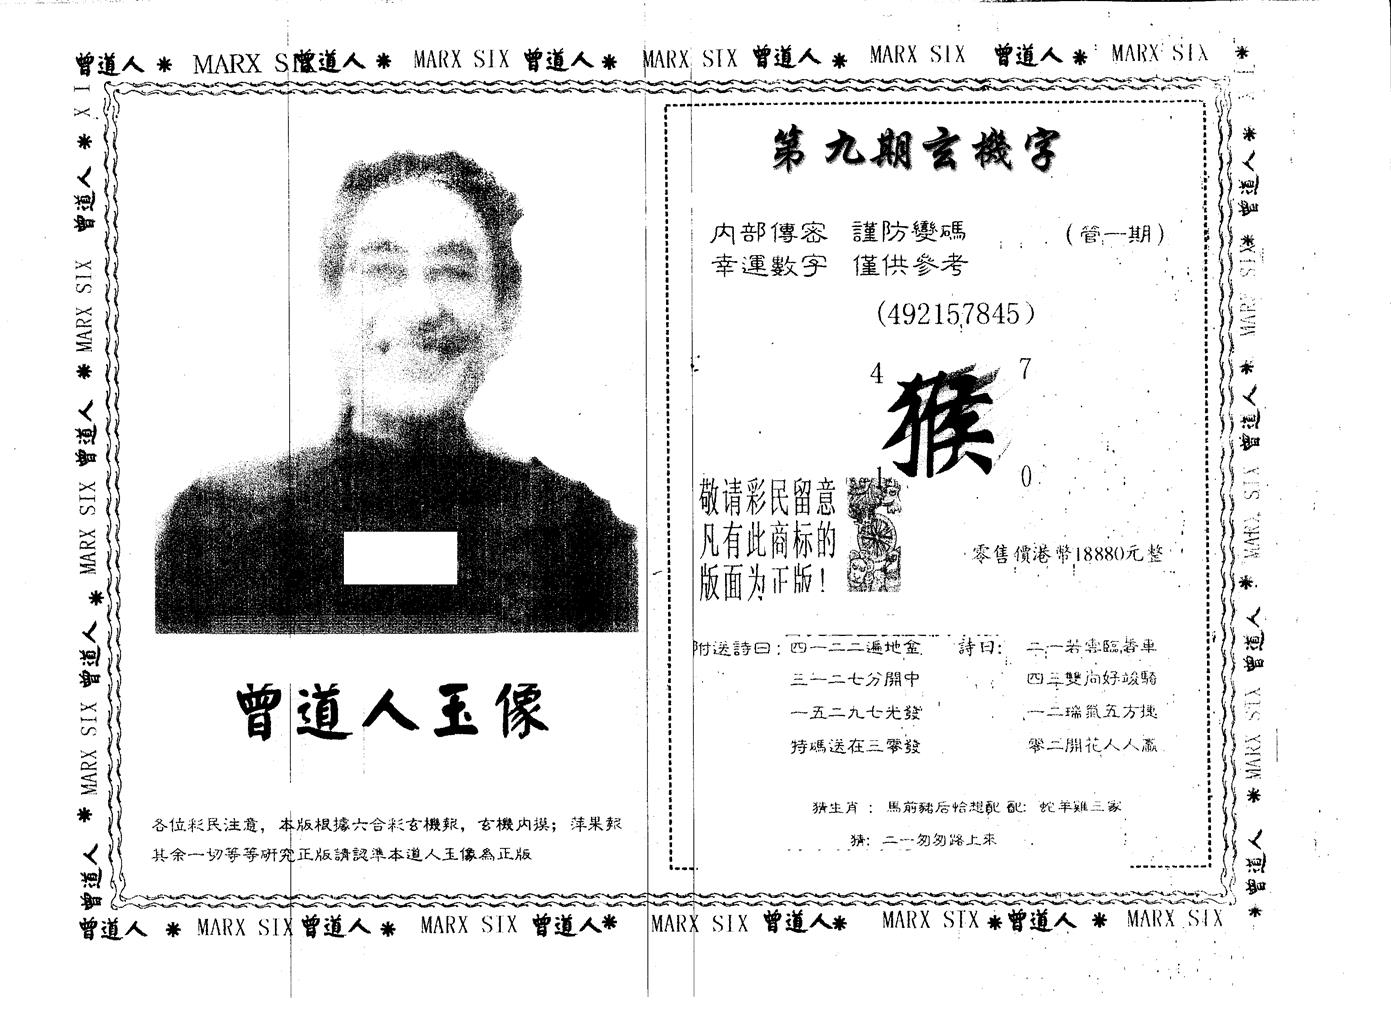 曾道人 * MARX SIX 曾道人 * MARX SIX 曾道人 * MARX SIX 曾道人 * MARX SIX 曾道人 * MARX SIX *
曾道人 * MARX SIX 曾道人 * MARX SIX 曾道人 * MARX SIX 曾道人 * X I
曾道人玉像
各位彩民注意，本版根據六合彩玄機報，玄機內摸；萍果報
其余一切等等研究正版請認準本道人玉像為正版
第九期玄機字
內部傳密 謹防變碼 (管一期)
幸運數字 僅供參考
(492157845)
4 7
猴
1 0
敬请彩民留意
凡有此商标的
版面为正版！
零售價港幣18880元整
附送詩曰：四一二二遍地金
三一二七分開中
一五二九七光發
特碼送在三零發
詩曰：二一若雲臨香車
四三雙尚好竣騎
一二瑞氣五方捷
零二開花人人贏
猜生肖：馬前豬后恰想配 配：蛇羊雞三家
猜：二一匆匆路上來
曾道人 * MARX SIX * 曾道人 * MARX SIX * 曾道人 * MARX SIX * 曾道人 *
曾道人 * MARX SIX 曾道人 * MARX SIX 曾道人 * MARX SIX 曾道人 * MARX SIX * 曾道人 * MARX SIX